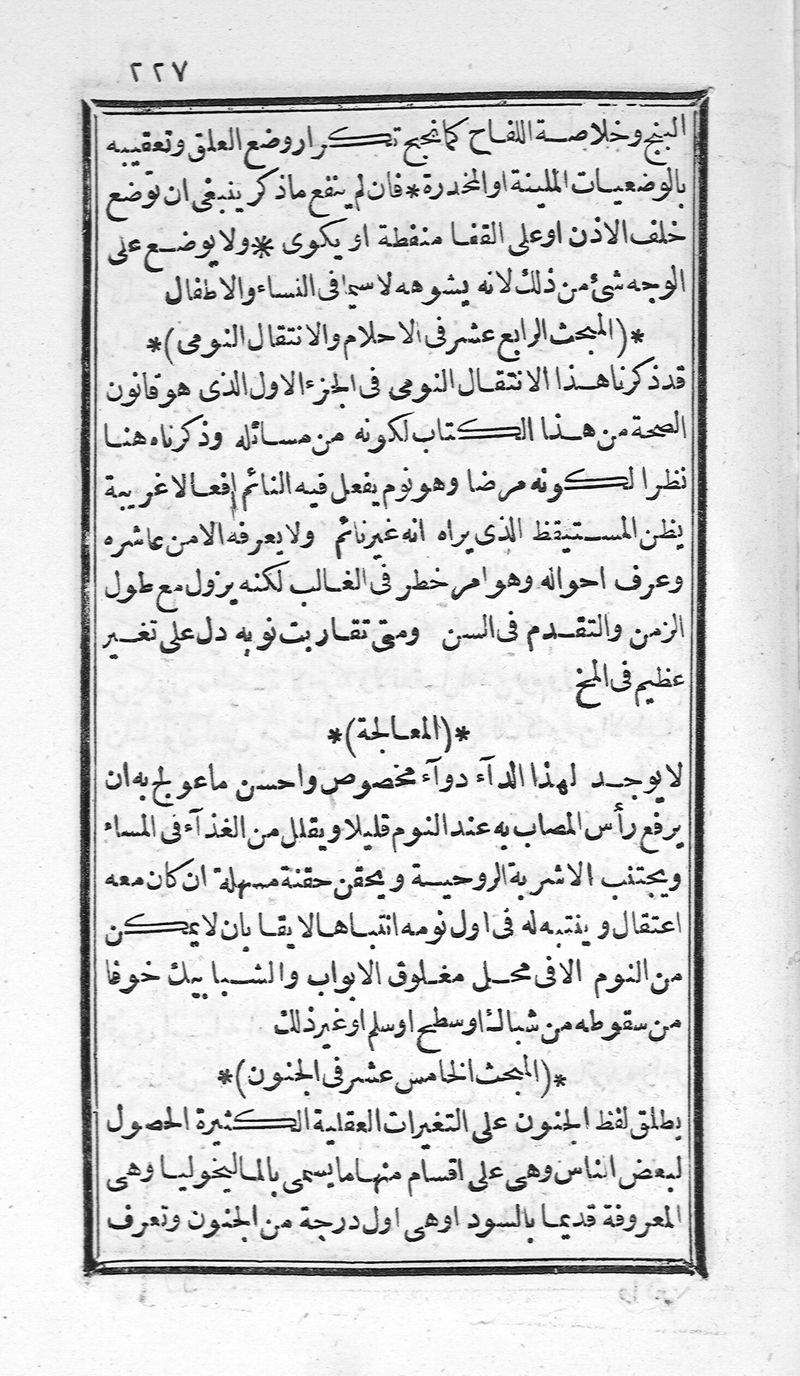 ٢٢٧
البنج وخلاصة اللفاح كما نجح تكرار وضع العلق وتعقيبه
بالوضعيات الملينة او المخدرة * فان لم ينفع ماذكر ينبغى ان توضع
خلف الاذن او على القفا منفطة او يكوى * ولا يوضع على
الوجه شئ من ذلك لانه يشوهه لاسيما فى النساء والاطفال
*(المبحث الرابع عشر فى الاحلام والانتقال النومى)*
قد ذكرنا هذا الانتقال النومى فى الجزء الاول الذى هو قانون
الصحة من هذا الكتاب لكونه من مسائله وذكرناه هنا
نظرا لكونه مرضا وهو نوم يفعل فيه النائم افعالا غريبة
يظن المستيقظ الذى يراه انه غير نائم ولا يعرفه الا من عاشره
وعرف احواله وهو امر خطر فى الغالب لكنه يزول مع طول
الزمن والتقدم فى السن ومتى تقاربت نوبه دل على تغير
عظيم فى المخ
*(المعالجة)*
لا يوجد لهذا الدآء دوآء مخصوص واحسن ما عولج به ان
يرفع رأس المصاب به عند النوم قليلا ويقلل من الغذآء فى المساء
ويجتنب الاشربة الروحية ويحقن حقنة مسهلة ان كان معه
اعتقال وينتبه له فى اول نومه انتباها لايقا بان لا يمكن
من النوم الا فى محل مغلوق الابواب والشبابيك خوفا
من سقوطه من شباك او سطح او سلم او غير ذلك
*(المبحث الخامس عشر فى الجنون)*
يطلق لفظ الجنون على التغيرات العقلية الكثيرة الحصول
لبعض الناس وهى على اقسام منها ما يسمى بالماليخوليا وهى
المعروفة قديما بالسودا وهى اول درجة من الجنون وتعرف